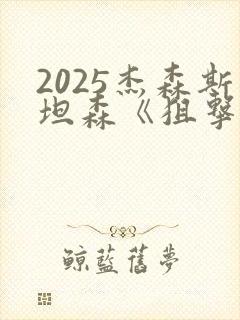 2025杰森斯
坦森《狙擊
鲸藍舊夢